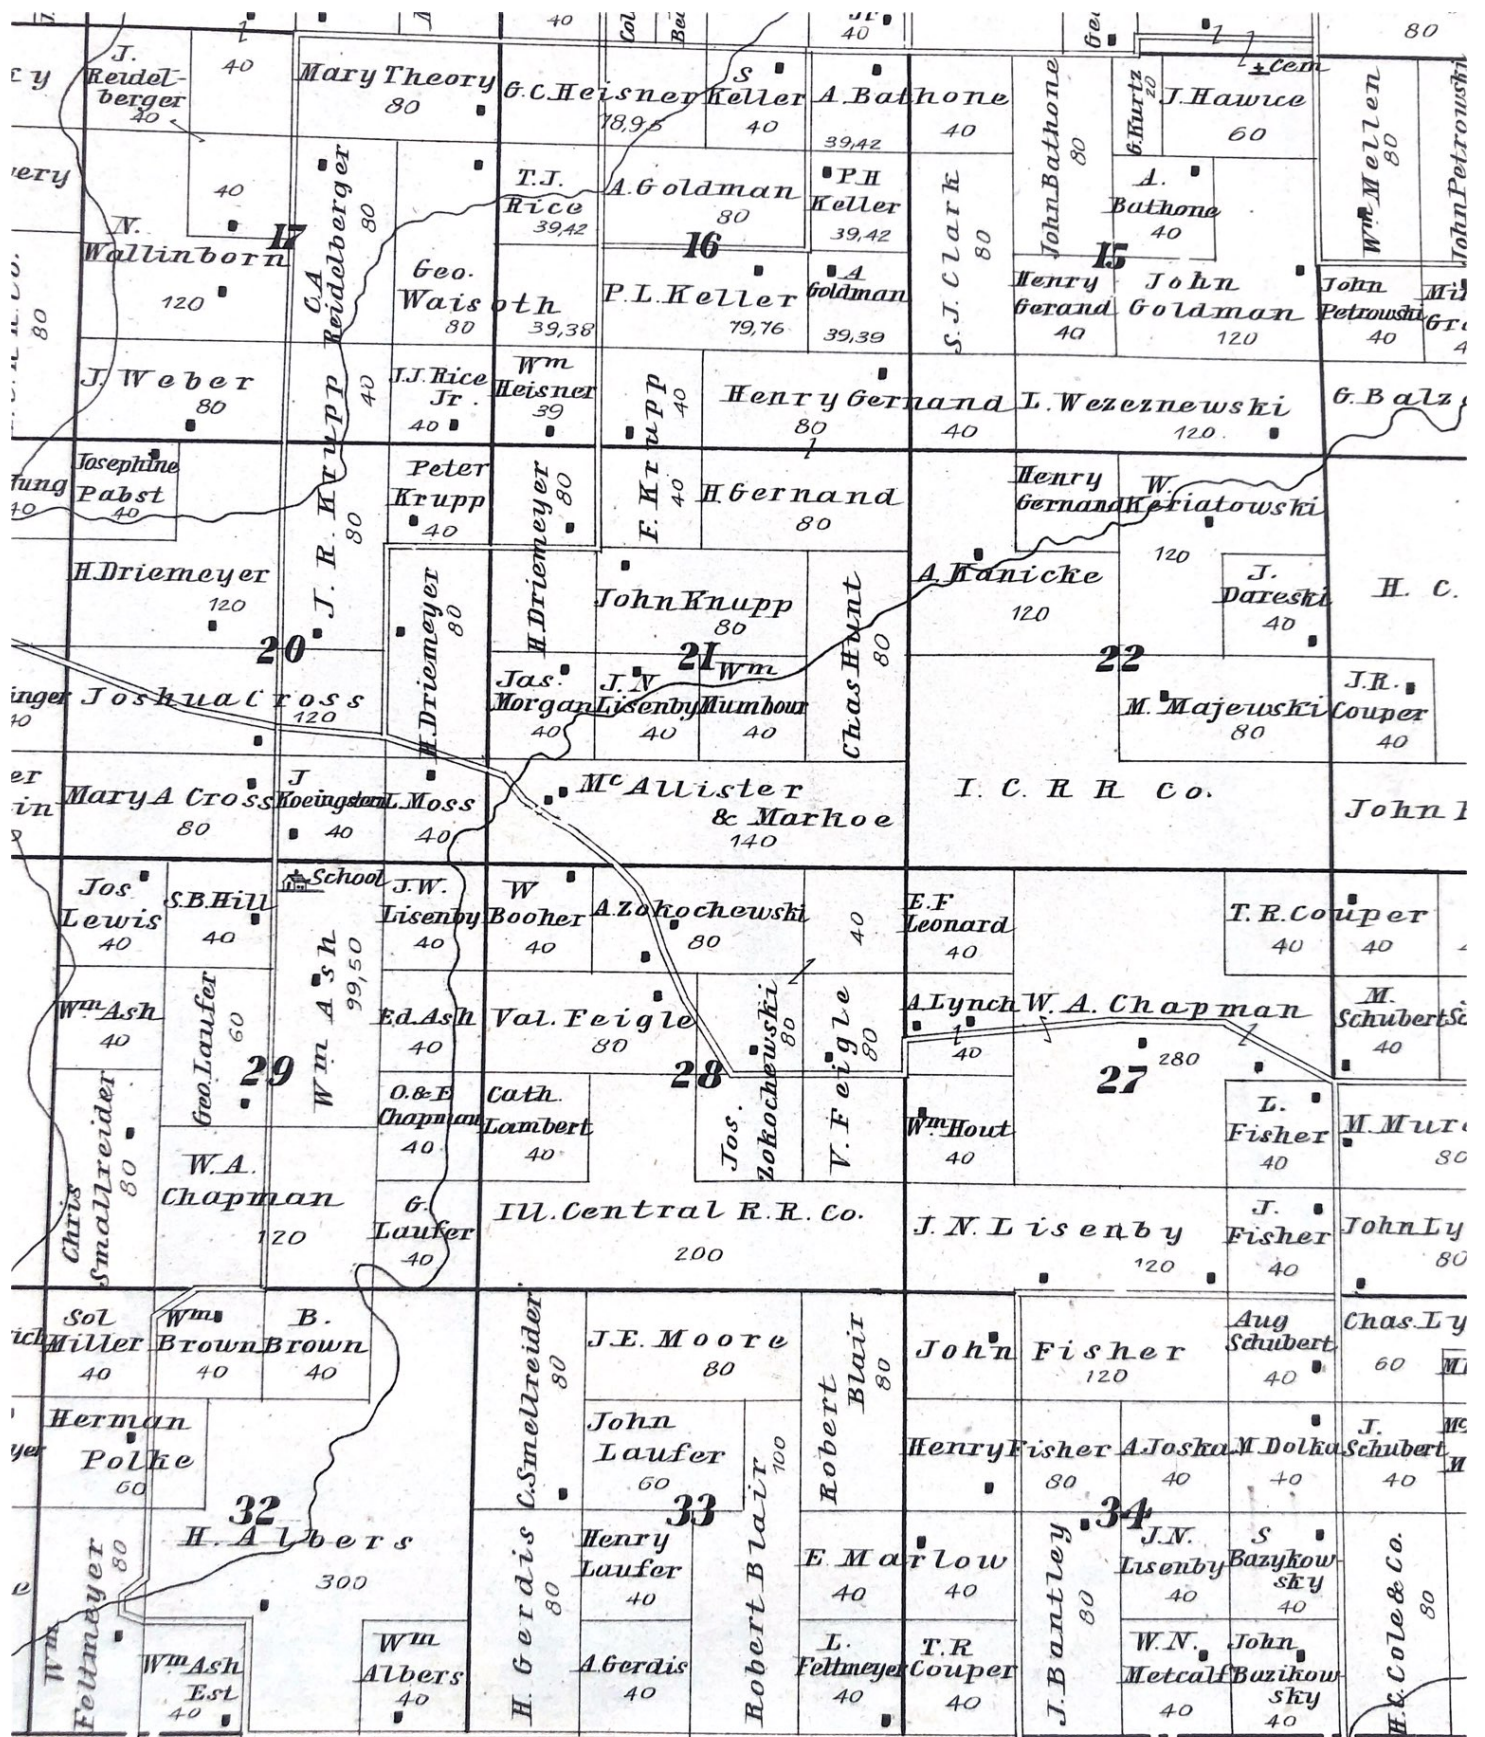 40
Jr
40
80
J.
Reidel-
berger
40
40
Mary Theory
80
G.C.Heisner
78,95
S
Keller
40
A. Bathone
39,42
40
John Bathone
80
G.Kurtz
20
Cem
J.Hawice
60
Wm Mellen
80
John Petrowski
40
N.
Wallinborn
120
17
C.A
Reidelberger
80
T.J.
Rice
39,42
A.Goldman
80
16
P.H
Keller
39,42
S.J. Clark
80
A.
Bathone
40
15
80
Geo.
Waisoth
80
39,38
P.L.Keller
79,76
A
Goldman
39,39
Henry
Gerand
40
John
Goldman
120
John
Petrowski
40
J. Weber
80
40
J.J.Rice
Jr.
40
Wm
Heisner
39
F. Krupp
40
40
Henry Gernand
80
40
L. Wezeznewski
120
G. Balz
Josephine
Pabst
40
40
J. R. Krupp
80
Peter
Krupp
40
H.Driemeyer
80
H.Gernand
80
Henry
Gernand
W.
Keriatowski
120
H.Driemeyer
120
20
H.Driemeyer
80
John Knupp
80
21
Chas Hunt
80
A. Kanicke
120
22
J.
Dareski
40
H. C.
inger
40
Joshua Cross
120
Jas.
Morgan
40
J. N
Lisenby
40
Wm
Mumbour
40
M. Majewski
80
J.R.
Couper
40
er
in
Mary A Cross
80
J
Koeingsten
40
L.Moss
40
Mc Allister
& Markoe
140
I. C. R R Co.
John
Jos
Lewis
40
S.B.Hill
40
School
Wm Ash
99,50
J.W.
Lisenby
40
W
Booher
40
A.Zokochewski
80
40
E.F
Leonard
40
T. R. Couper
40
40
Wm Ash
40
Geo.Laufer
60
29
Ed.Ash
40
Val. Feigle
80
28
Jos.
Zokochewski
80
V. Feigle
80
A.Lynch
40
W. A. Chapman
280
27
M.
Schubert
40
Chris
Smallreider
80
O.&E
Chapman
40
Cath.
Lambert
40
Wm Hout
40
L.
Fisher
40
M. Mur
80
W.A.
Chapman
120
G.
Laufer
40
Ill. Central R.R. Co.
200
J. N. Lisenby
120
J.
Fisher
40
John Ly
80
Sol
Miller
40
Wm
Brown
40
B.
Brown
40
C.Smellreider
80
J.E. Moore
80
Robert
Blair
80
John Fisher
120
Aug
Schubert
40
Chas.Ly
60
Herman
Polke
60
32
John
Laufer
60
33
Henry Fisher
80
A.Joska
40
M. Dolka
40
J.
Schubert
40
34
Wm
Feltmeyer
80
H. Albers
300
H. Gerdis
80
Henry
Laufer
40
Robert Blair
100
E. Marlow
40
40
J.Bantley
80
J.N.
Lisenby
40
S
Bazykow-
sky
40
H.C.Cole & Co.
80
Wm Ash
Est
40
Wm
Albers
40
A.Gerdis
40
L.
Feltmeyer
40
T.R
Couper
40
W.N.
Metcalf
40
John
Bazikow-
sky
40